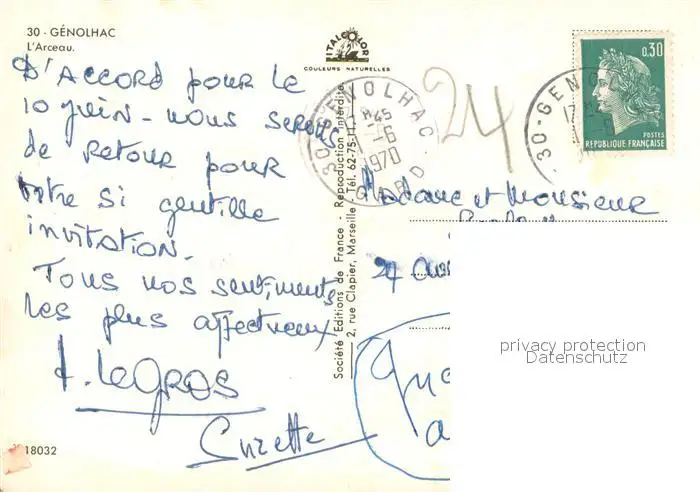 30 - GÉNOLHAC
L'Arceau.
ITALCOLOR
COULEURS NATURELLES
D'ACCORD pour le
10 juin - nous serons
de retour pour
votre si gentille
invitation.
Tous nos sentiments
les plus affectueux
LeGROS
Suzette
18032
Société Editions de France - Reproduction interdite
2, rue Clapier, Marseille - Tél. 62-75-11.
30-GENOLHAC
1-6
1970
GARD
24
30-GENO
0,30
POSTES
REPUBLIQUE FRANÇAISE
Madame et Monsieur
privacy protection
Datenschutz